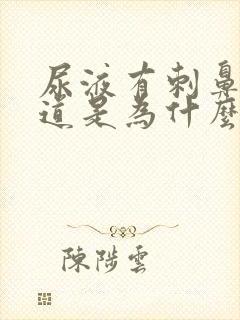 尿液有刺鼻
道是為什麼
陳陟雲